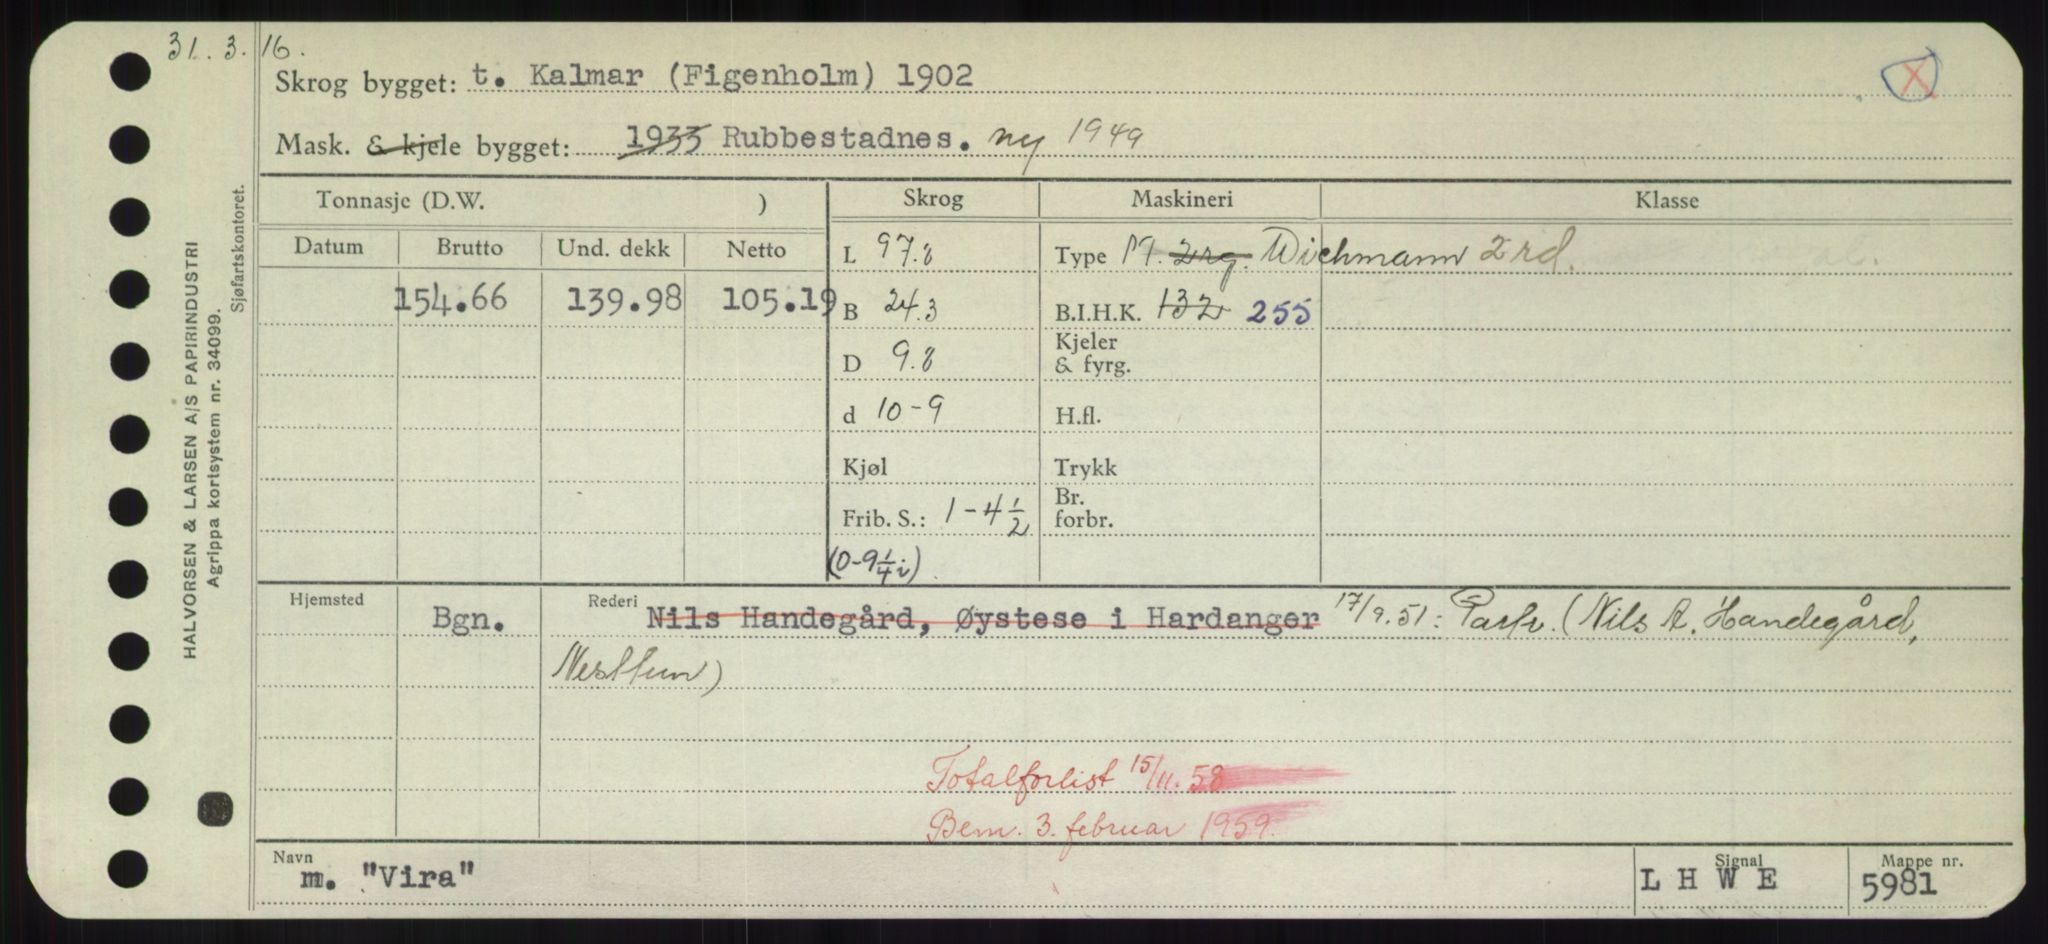 31. 3. 16.
Skrog bygget: t. Kalmar (Figenholm) 1902
X
Mask. & kjele bygget: 1933 Rubbestadnes. ny 1949
Tonnasje (D.W. ) Skrog Maskineri Klasse
Datum Brutto Und. dekk Netto
154.66 139.98 105.19
L 97.8
B 24.3
D 9.8
d 10-9
Kjøl
Frib. S.: 1-4½
(0-9¼ i)
Type M. 2rg. Wichmann 2rd.
B.I.H.K. 132 255
Kjeler
& fyrg.
H.fl.
Trykk
Br.
forbr.
Hjemsted Bgn. Rederi Nils Handegård, Øystese i Hardanger 17/9.51: Partr. (Nils A. Handegård,
Nesttun)
Totalforlist 15/11.58
Bem. 3. februar 1959.
Navn Signal Mappe nr.
m. "Vira" L H W E 5981
HALVORSEN & LARSEN A/S PAPIRINDUSTRI
Agrippa kortsystem nr. 34099.
Sjøfartskontoret.